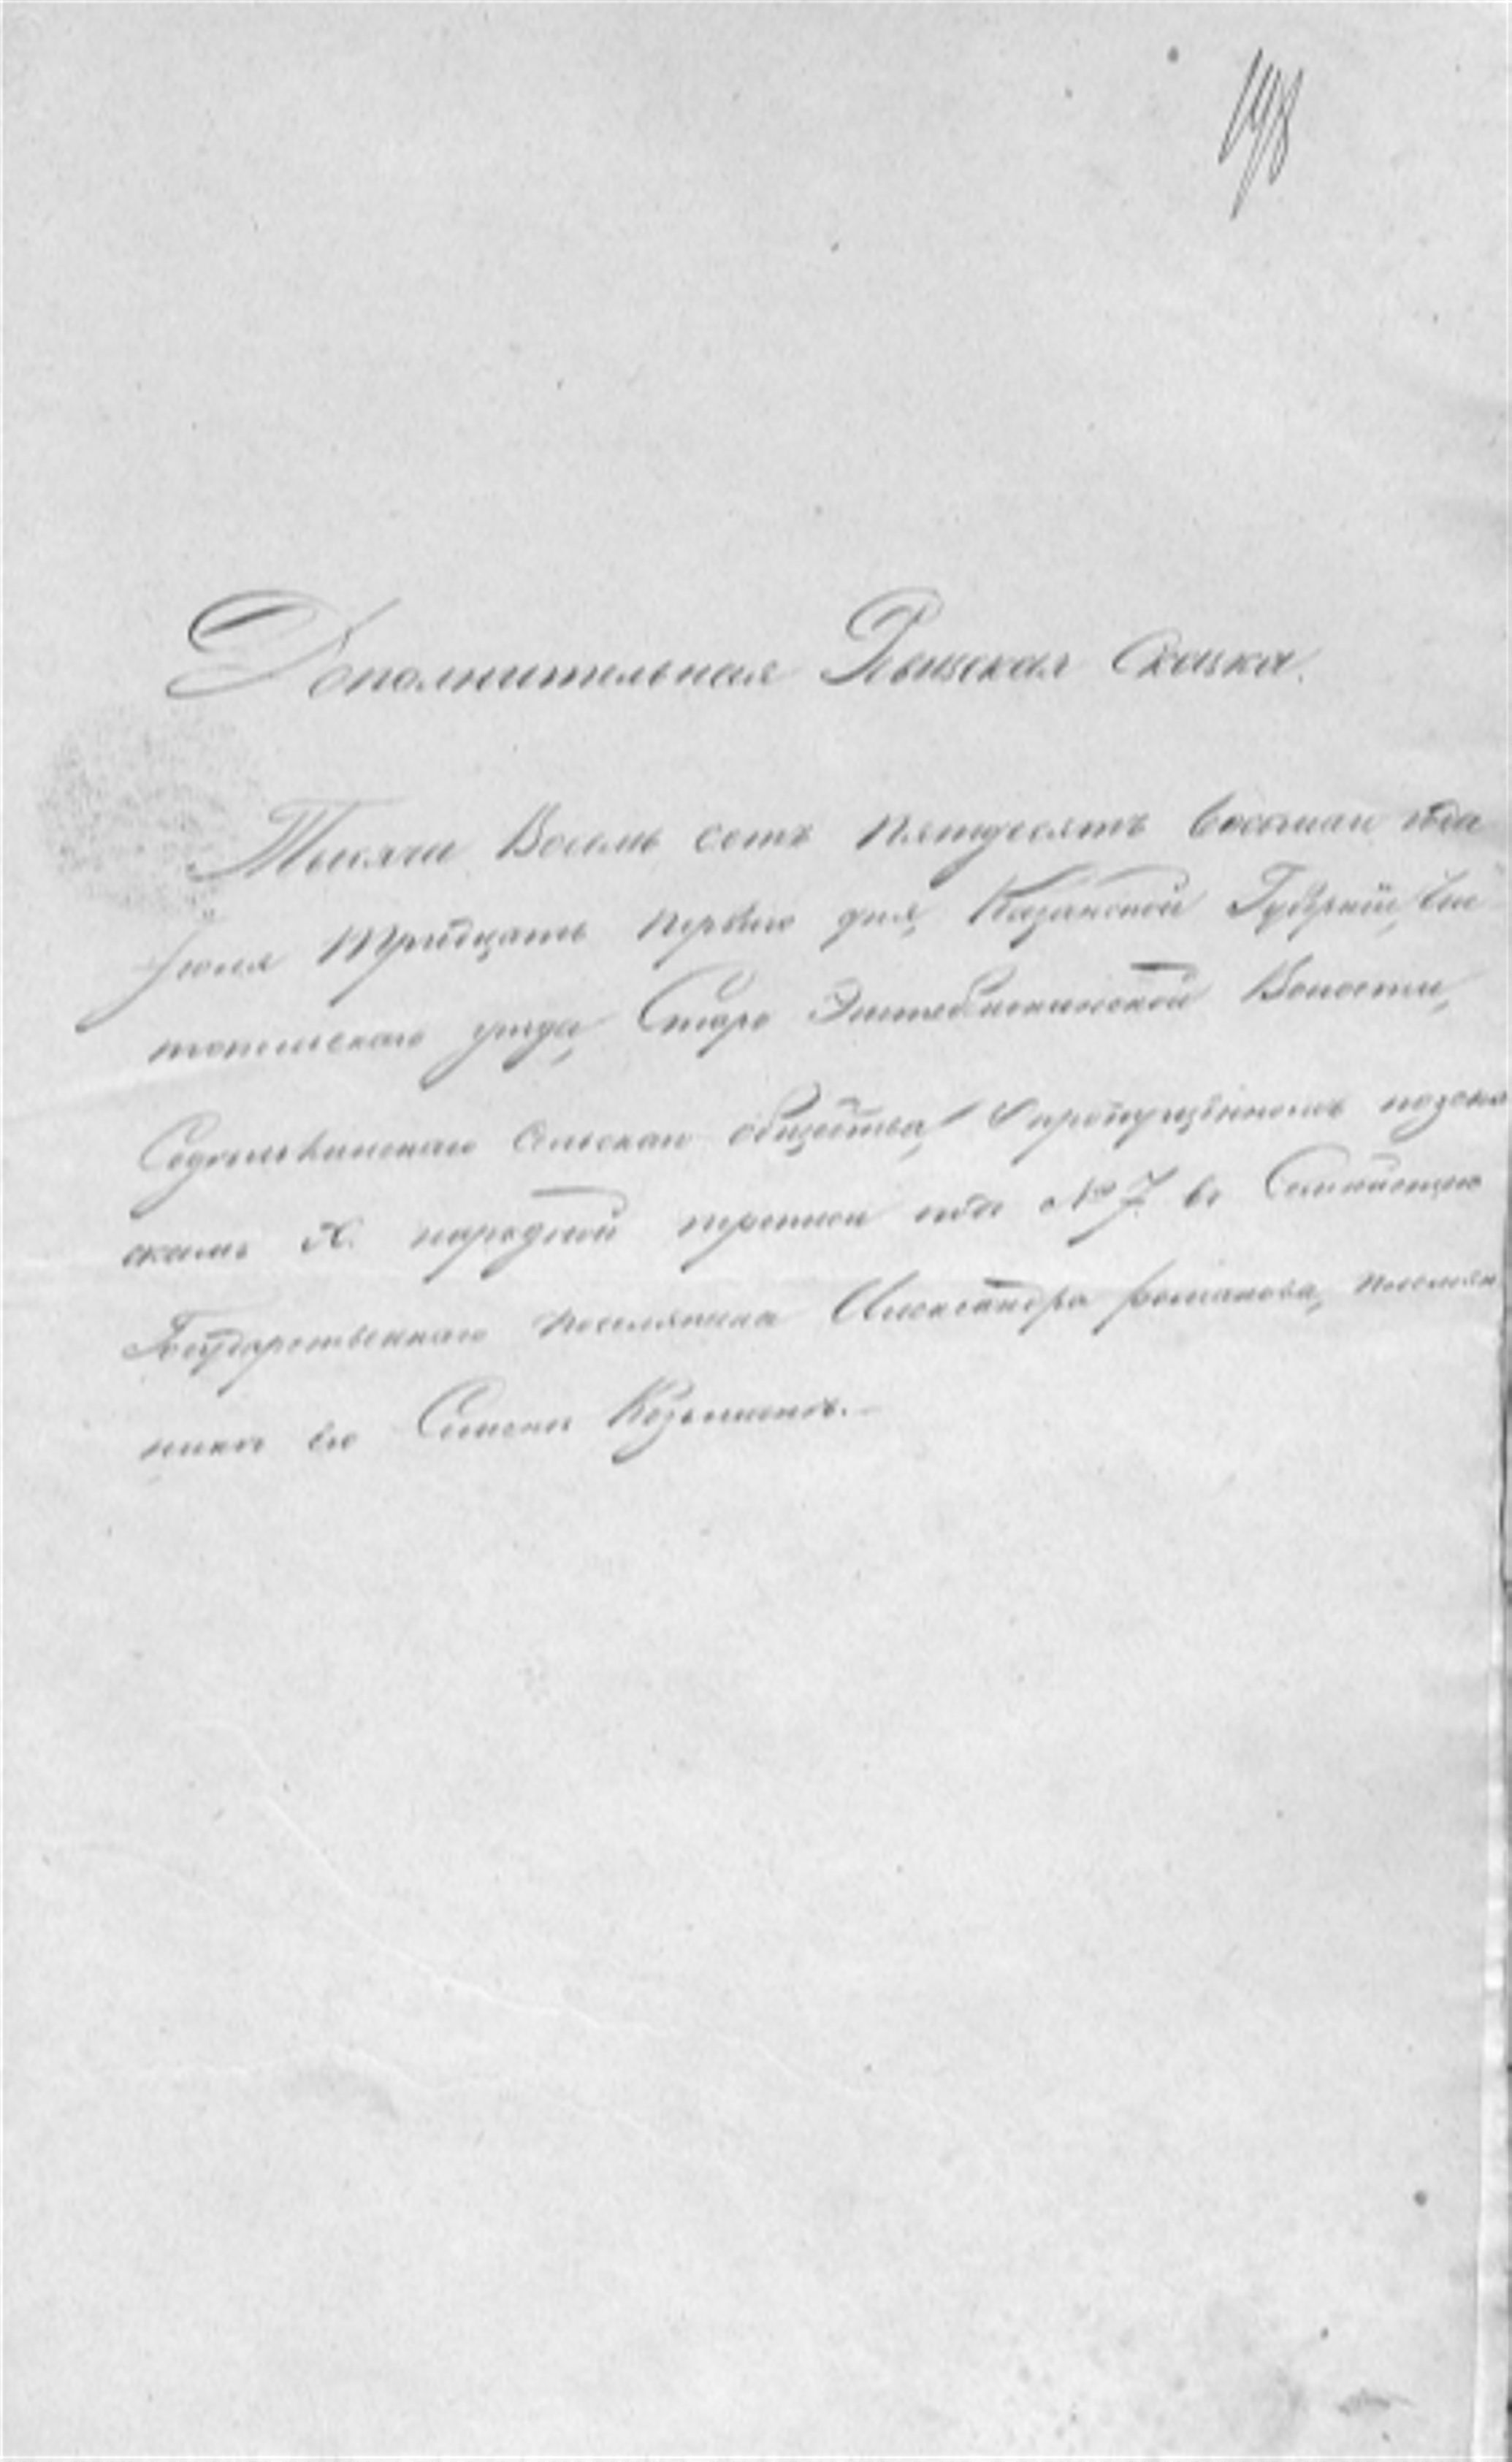 198
Дополнительная Ревизская Сказка.
Тысяча Восемь сотъ пятьдесятъ восьмаго года
Іюля тридцать перваго дня, Казанской Губерніи, Чис
топольскаго уезда, Старо Волости,
сельскаго общества, о пропущенномъ
X. народной переписи подъ № 7. въ
Государственнаго поселянина Александра Романова, племян
никъ его Семенъ